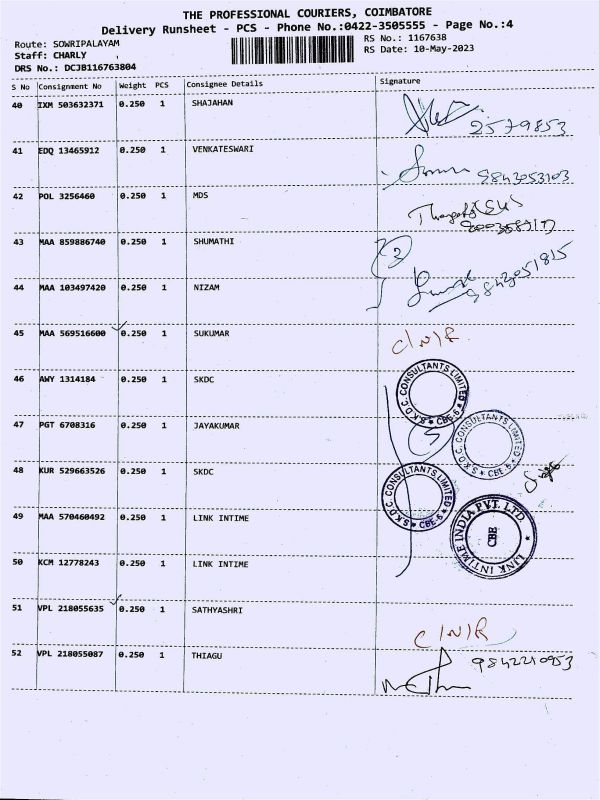 THE PROFESSIONAL COURIERS, COIMBATORE
Delivery Runsheet - PCS - Phone No.:0422-3505555 - Page No.:4
Route: SOWRIPALAYAM
RS No.: 1167638
Staff: CHARLY
RS Date: 10-May-2023
DRS No.: DCJB116763804
S No Consignment No Weight PCS Consignee Details Signature
40 IXM 503632371 0.250 1 SHAJAHAN
2579853
41 EDQ 13465912 0.250 1 VENKATESWARI
9843053103
42 POL 3256460 0.250 1 MDS
43 MAA 859886740 0.250 1 SHUMATHI
2
44 MAA 103497420 0.250 1 NIZAM
9843051815
45 MAA 569516600 0.250 1 SUKUMAR
C/N/R
46 AWY 1314184 0.250 1 SKDC
S.K.D.C. CONSULTANTS LIMITED CBE-6
47 PGT 6708316 0.250 1 JAYAKUMAR
5
S.K.D.C. CONSULTANTS LIMITED CBE-6
48 KUR 529663526 0.250 1 SKDC
S.K.D.C. CONSULTANTS LIMITED CBE-6
49 MAA 570460492 0.250 1 LINK INTIME
LINK INTIME INDIA PVT. LTD. CBE
50 KCM 12778243 0.250 1 LINK INTIME
51 VPL 218055635 0.250 1 SATHYASHRI
C/N/R
52 VPL 218055087 0.250 1 THIAGU
9842210953